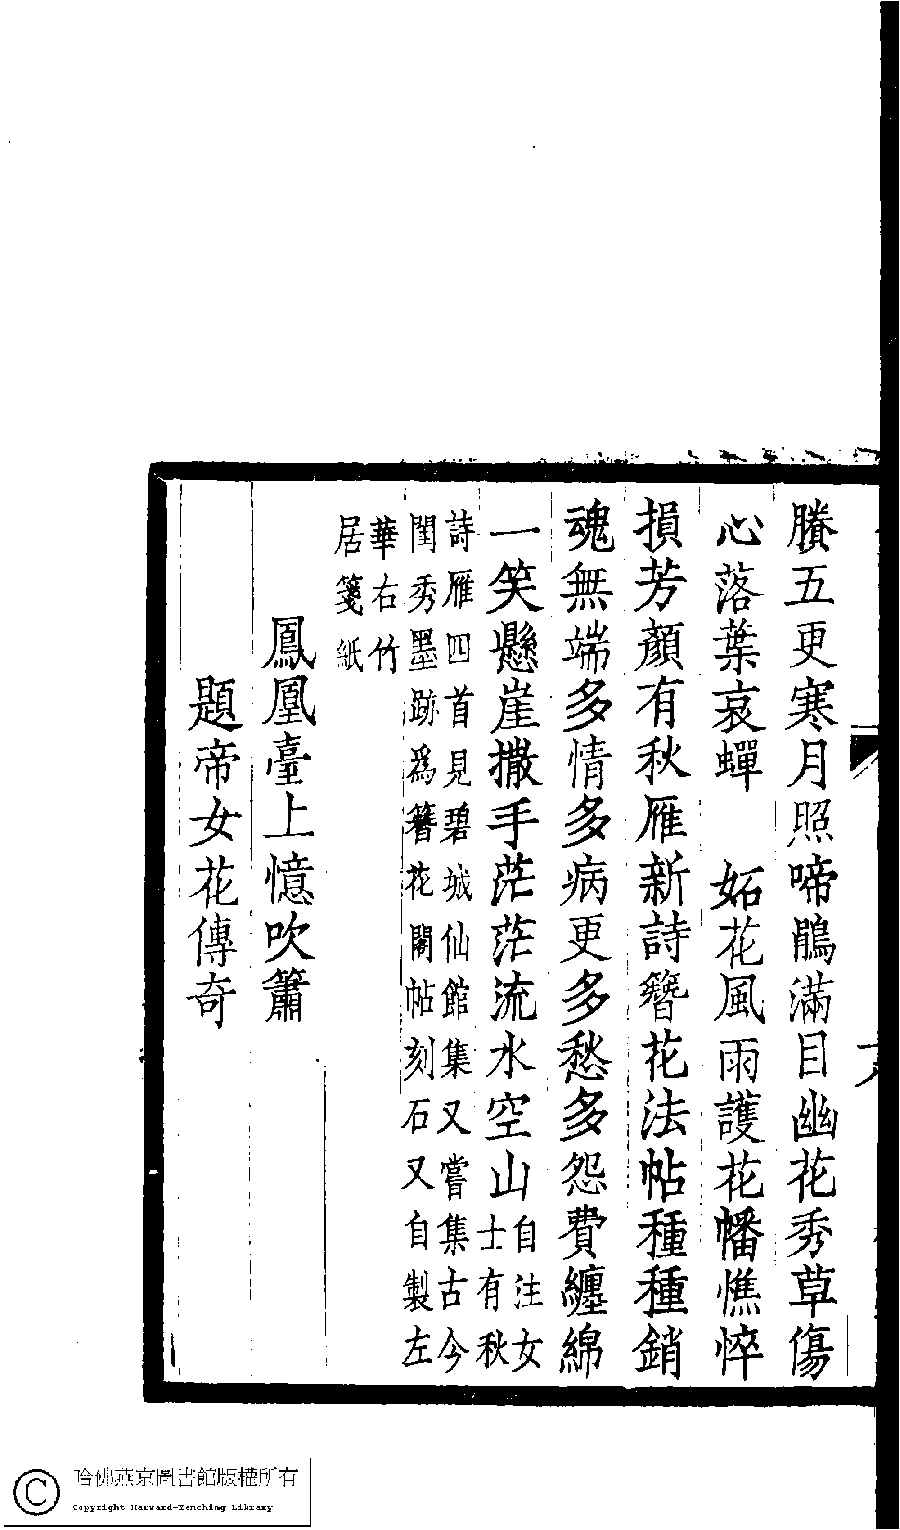 賸五更寒月照啼鵑滿目幽花秀草傷
心落葉哀蟬　妬花風雨護花幡憔悴
損芳顏有秋雁新詩簪花法帖種種銷
魂無端多情多病更多愁多怨費纏綿
一笑懸崖撒手茫茫流水空山自注女
士有秋
詩雁四首見碧城仙館集又嘗集古今
閨秀墨跡爲簪花閣帖刻石又自製左
華右竹
居箋紙
鳳凰臺上憶吹簫
題帝女花傳奇
哈佛燕京圖書館版權所有
Copyright Harvard-Yenching Library